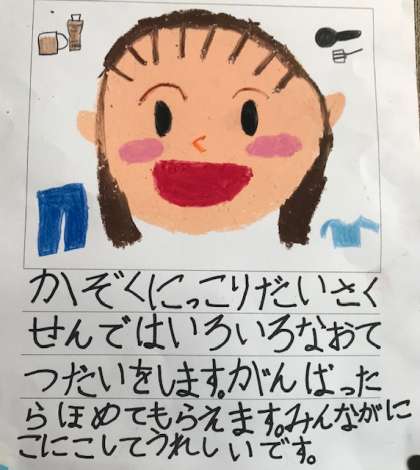 かぞくにっこりだいさく
せんではいろいろなおて
つだいをします。がんばった
らほめてもらえます。みんながに
こにこしてうれしいです。